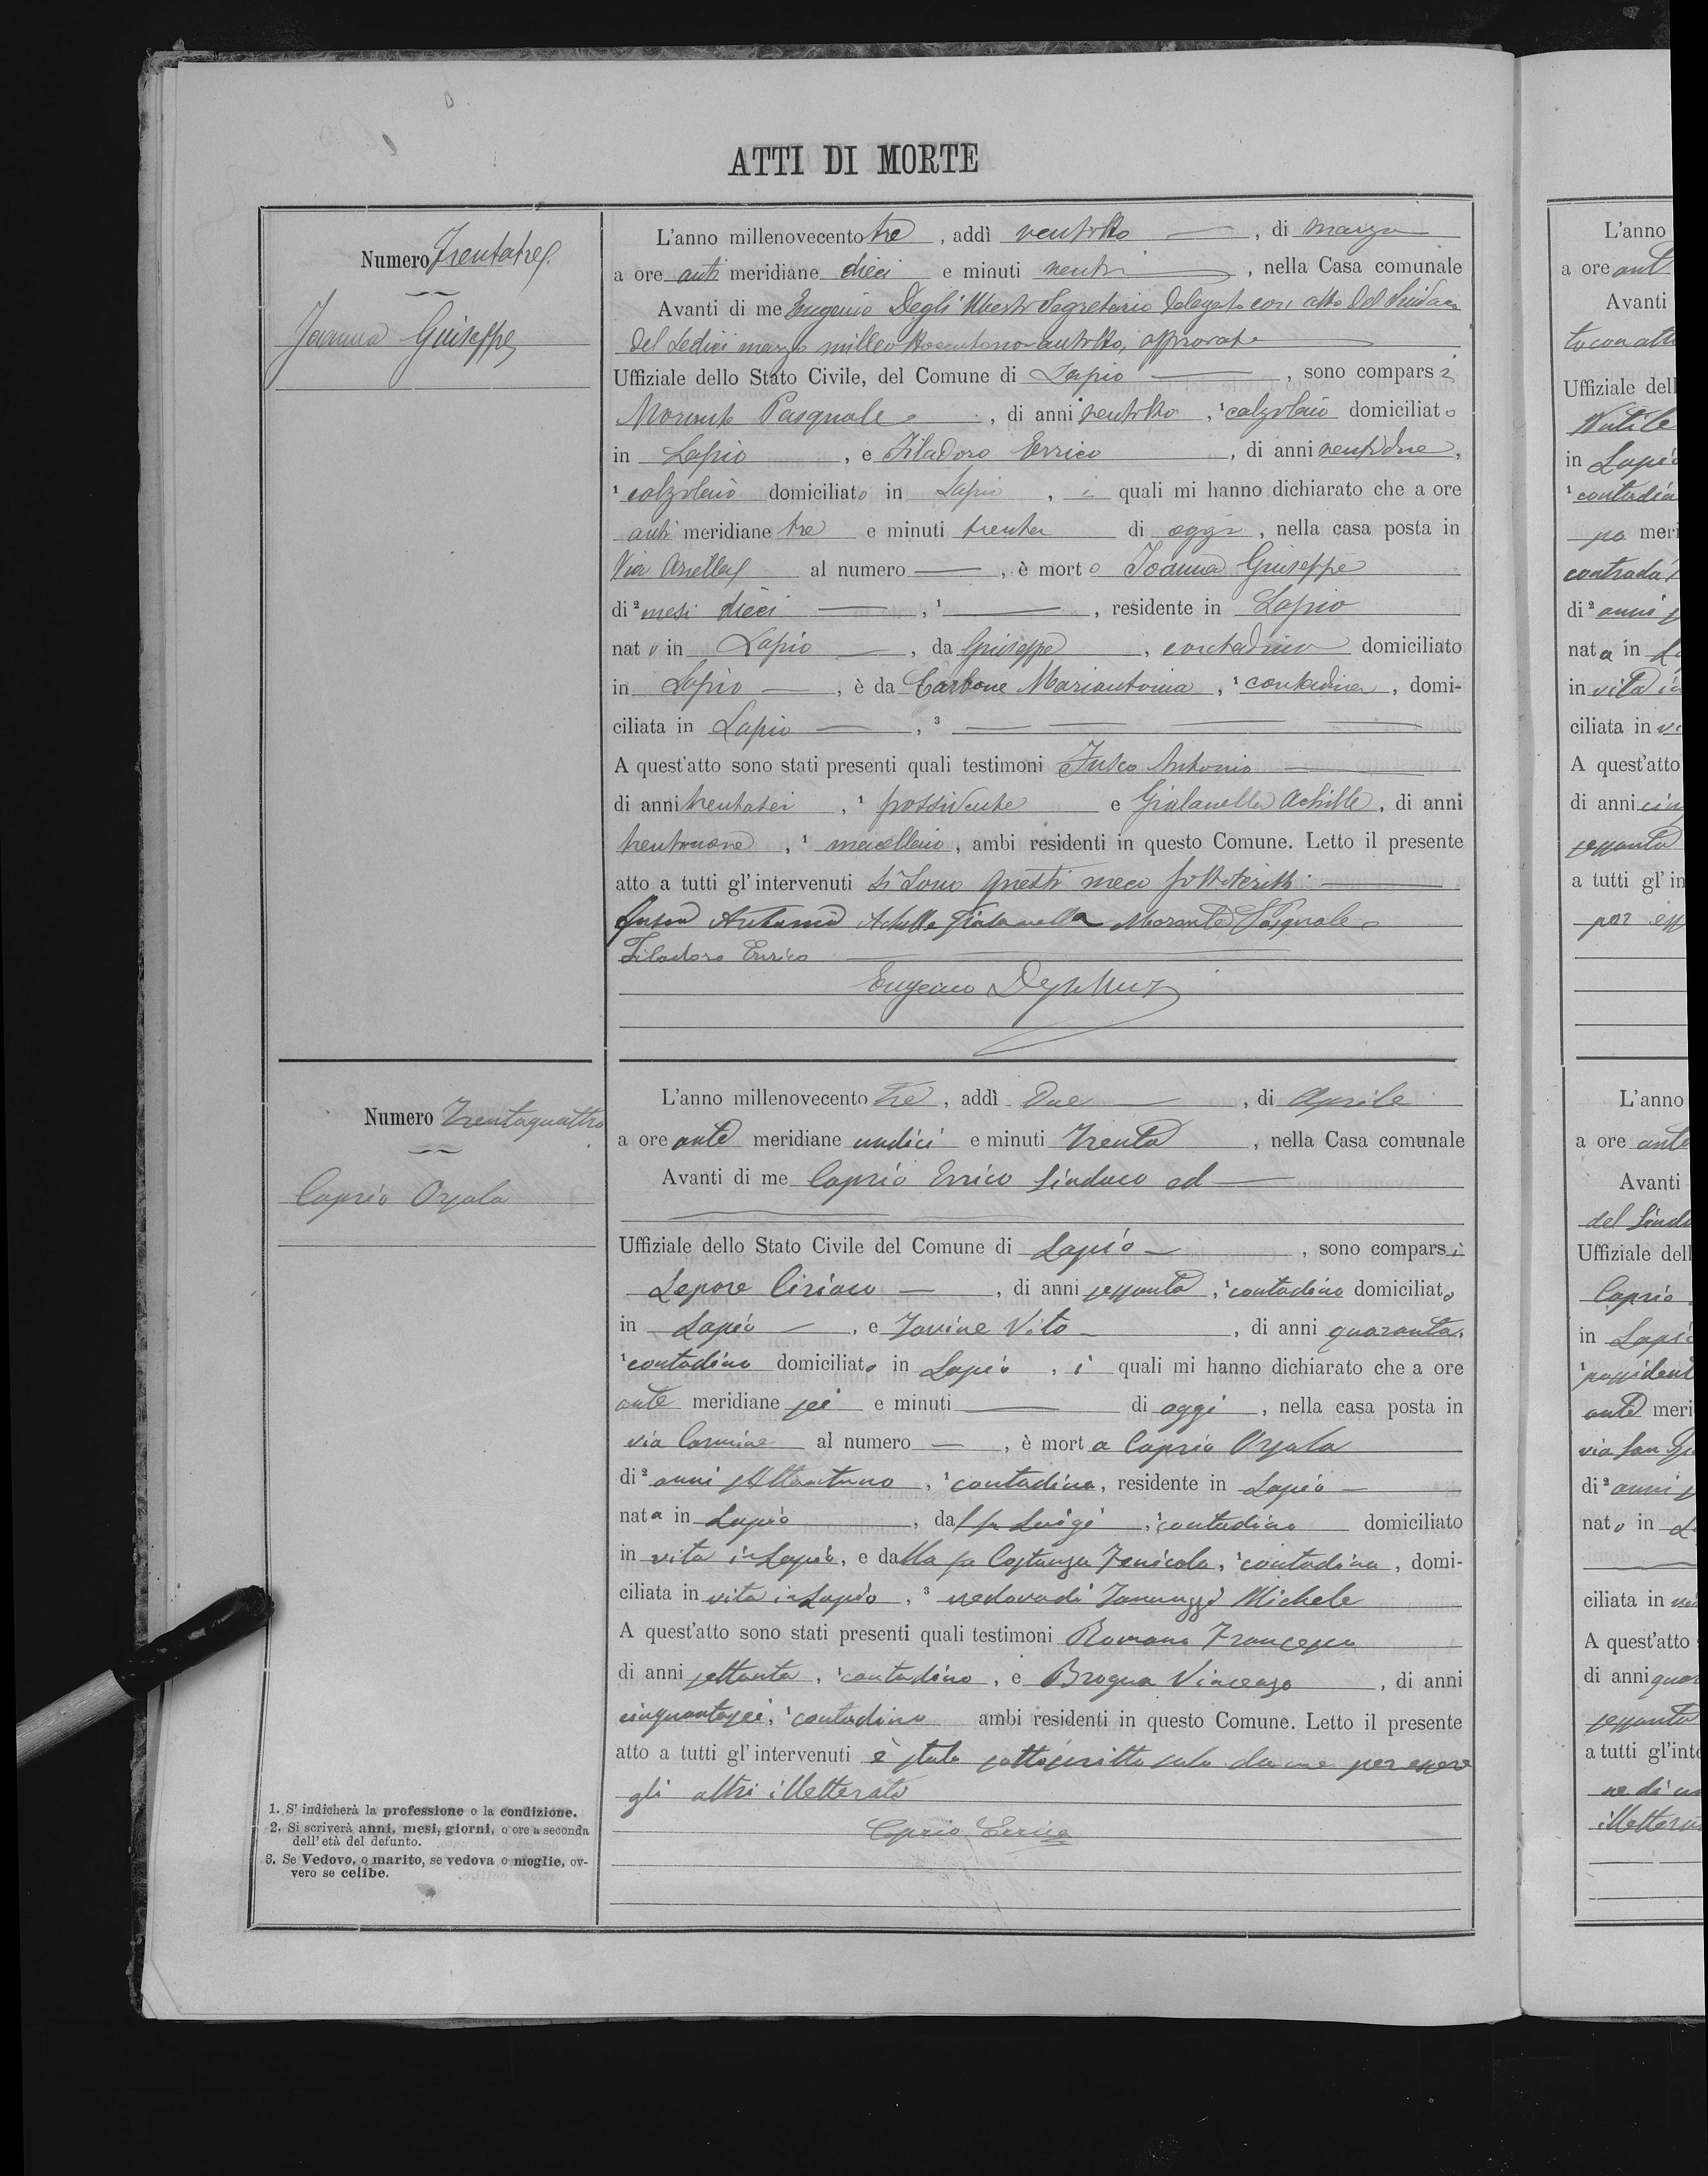 ATTI DI MORTE
Numero Trentatre
Joanna Giuseppe
L'anno millenovecento tre, addì ventotto, di marzo
a ore anti meridiane dieci e minuti venti, nella Casa comunale
Avanti di me Eugenio Degli Uberti Segretario delegato con atto del Sindaco
del sedici marzo milleottocentonovantotto, approvato
Uffiziale dello Stato Civile, del Comune di Lapio, sono comparsi
Morante Pasquale, di anni ventotto, ¹ calzolaio domiciliato
in Lapio, e Filadoro Errico, di anni ventidue,
¹ calzolaio domiciliato in Lapio, i quali mi hanno dichiarato che a ore
anti meridiane tre e minuti trenta di oggi, nella casa posta in
Via al numero, è morto Joanna Giuseppe
di ² mesi dieci, ¹, residente in Lapio
nato in Lapio, da Giuseppe, contadino domiciliato
in Lapio, è da Carbone Mariantonia, ¹ contadina, domi-
ciliata in Lapio, ³
A quest'atto sono stati presenti quali testimoni Fusco Antonio
di anni trentasei, ¹ possidente e Gialanella Achille, di anni
trentanove, ¹ macellaio, ambi residenti in questo Comune. Letto il presente
atto a tutti gl'intervenuti si sono questi meco sottoscritti
Fusco Antonio Achille Gialanella Morante Pasquale
Filadoro Errico
Eugenio Degli Uberti
Numero Trentaquattro
Caprio Orsala
L'anno millenovecento tre, addì due, di Aprile
a ore ante meridiane undici e minuti trenta, nella Casa comunale
Avanti di me Caprio Errico Sindaco ed
Uffiziale dello Stato Civile del Comune di Lapio, sono comparsi
Lepore Ciriaco, di anni sessanta, ¹ contadino domiciliato
in Lapio, e Iavine Vito, di anni quaranta,
¹ contadino domiciliato in Lapio, i quali mi hanno dichiarato che a ore
ante meridiane sei e minuti di oggi, nella casa posta in
via Carmine al numero, è morta Caprio Orsala
di ² anni settantuno, ¹ contadina, residente in Lapio
nata in Lapio, dal fu Luigi, ¹ contadino domiciliato
in vita in Lapio, e dalla fu Costanza Fenicola, ¹ contadina, domi-
ciliata in vita in Lapio, ³ vedova di Iannuzzi Michele
A quest'atto sono stati presenti quali testimoni Romano Francesco
di anni settanta, ¹ contadino, e Brogna Vincenzo, di anni
cinquantasei, ¹ contadino ambi residenti in questo Comune. Letto il presente
atto a tutti gl'intervenuti è stato sottoscritto solo da me per essere
gli altri illetterati
Caprio Errico
1. S'indicherà la professione o la condizione.
2. Si scriverà anni, mesi, giorni, o ore a seconda
dell'età del defunto.
3. Se Vedovo, o marito, se vedova o moglie, ov-
vero se celibe.
L'anno
a ore ant
Avanti
to con atto
Uffiziale dell
Nutile
in Lapio
¹ contadin
po meri
contrada
di ² anni
nata in
in vita in
ciliata in
A quest'atto
di anni cin
sessanta
a tutti gl'in
per ess
L'anno
a ore ante
Avanti
del Sinda
Uffiziale dell
Caprio
in Lapio
¹ possident
ante meri
via San
di ² anni
nato in
ciliata in
A quest'atto
di anni quar
sessanta
a tutti gl'inte
illettera